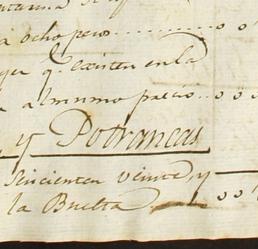 á ocho pesos
q.e existen en la
a al mismo precio
y Potrancas
Seicientas veinte y
la Buelta